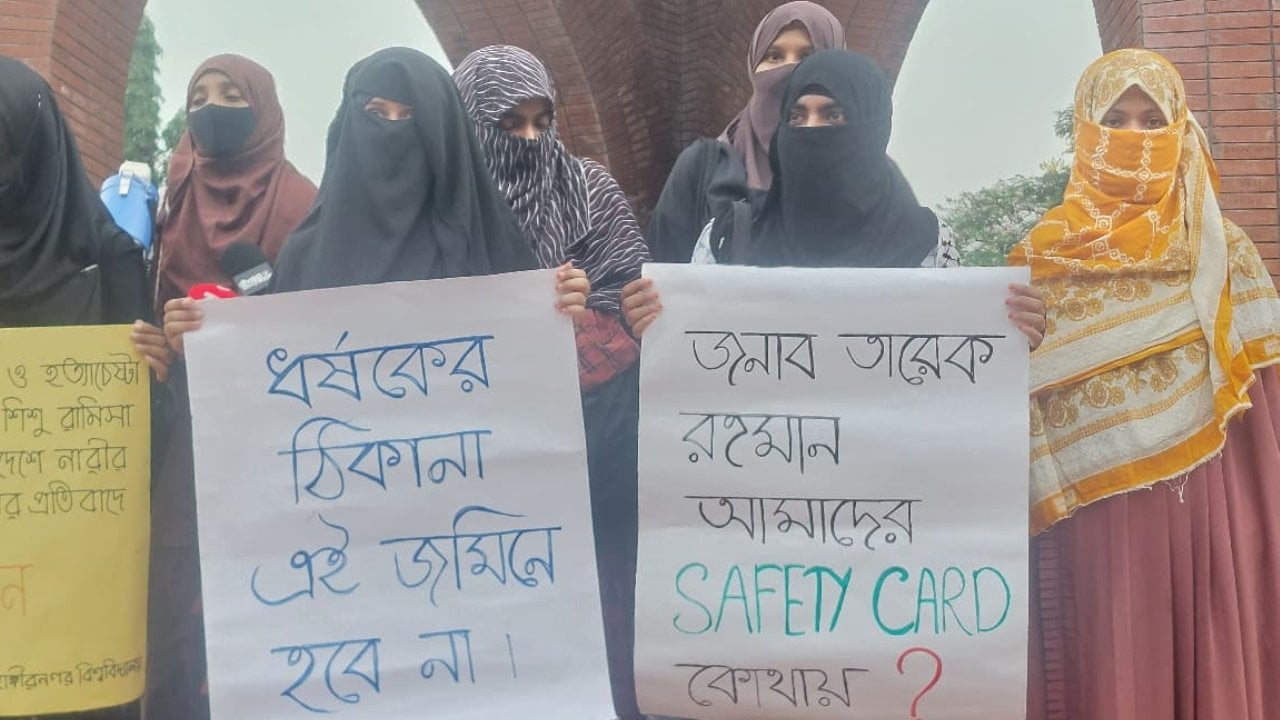 ও হত্যাচেষ্টা
শিশু রামিসা
দেশে নারীর
প্রতিবাদে
ধর্ষকের
ঠিকানা
এই জমিনে
হবে না।
জনাব তারেক
রহমান
আমাদের
SAFETY CARD
কোথায় ?